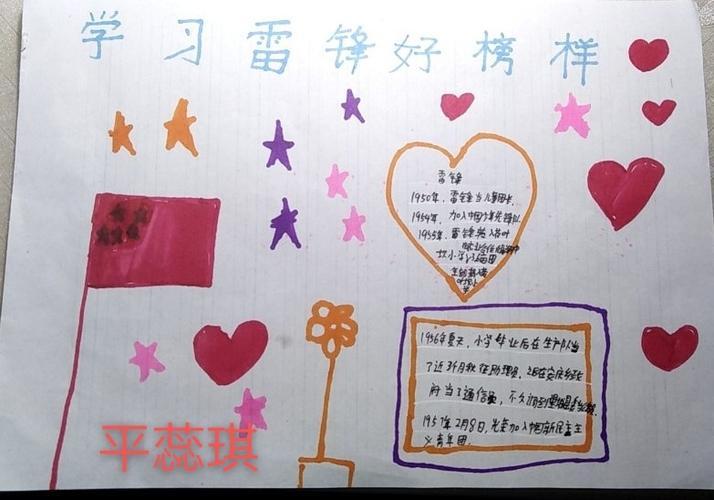 学习雷锋好榜样
雷锋
1950年，雷锋当儿童团长
1954年，加入中国少年先锋队
1955年，雷锋转入荷叶
坝小学
1956年夏天，小学毕业后在生产队当
了近 秋征助理员，
府当了通信员，不久
1957年2月8日，光荣加入中国新民主主
义青年团。
平蕊琪